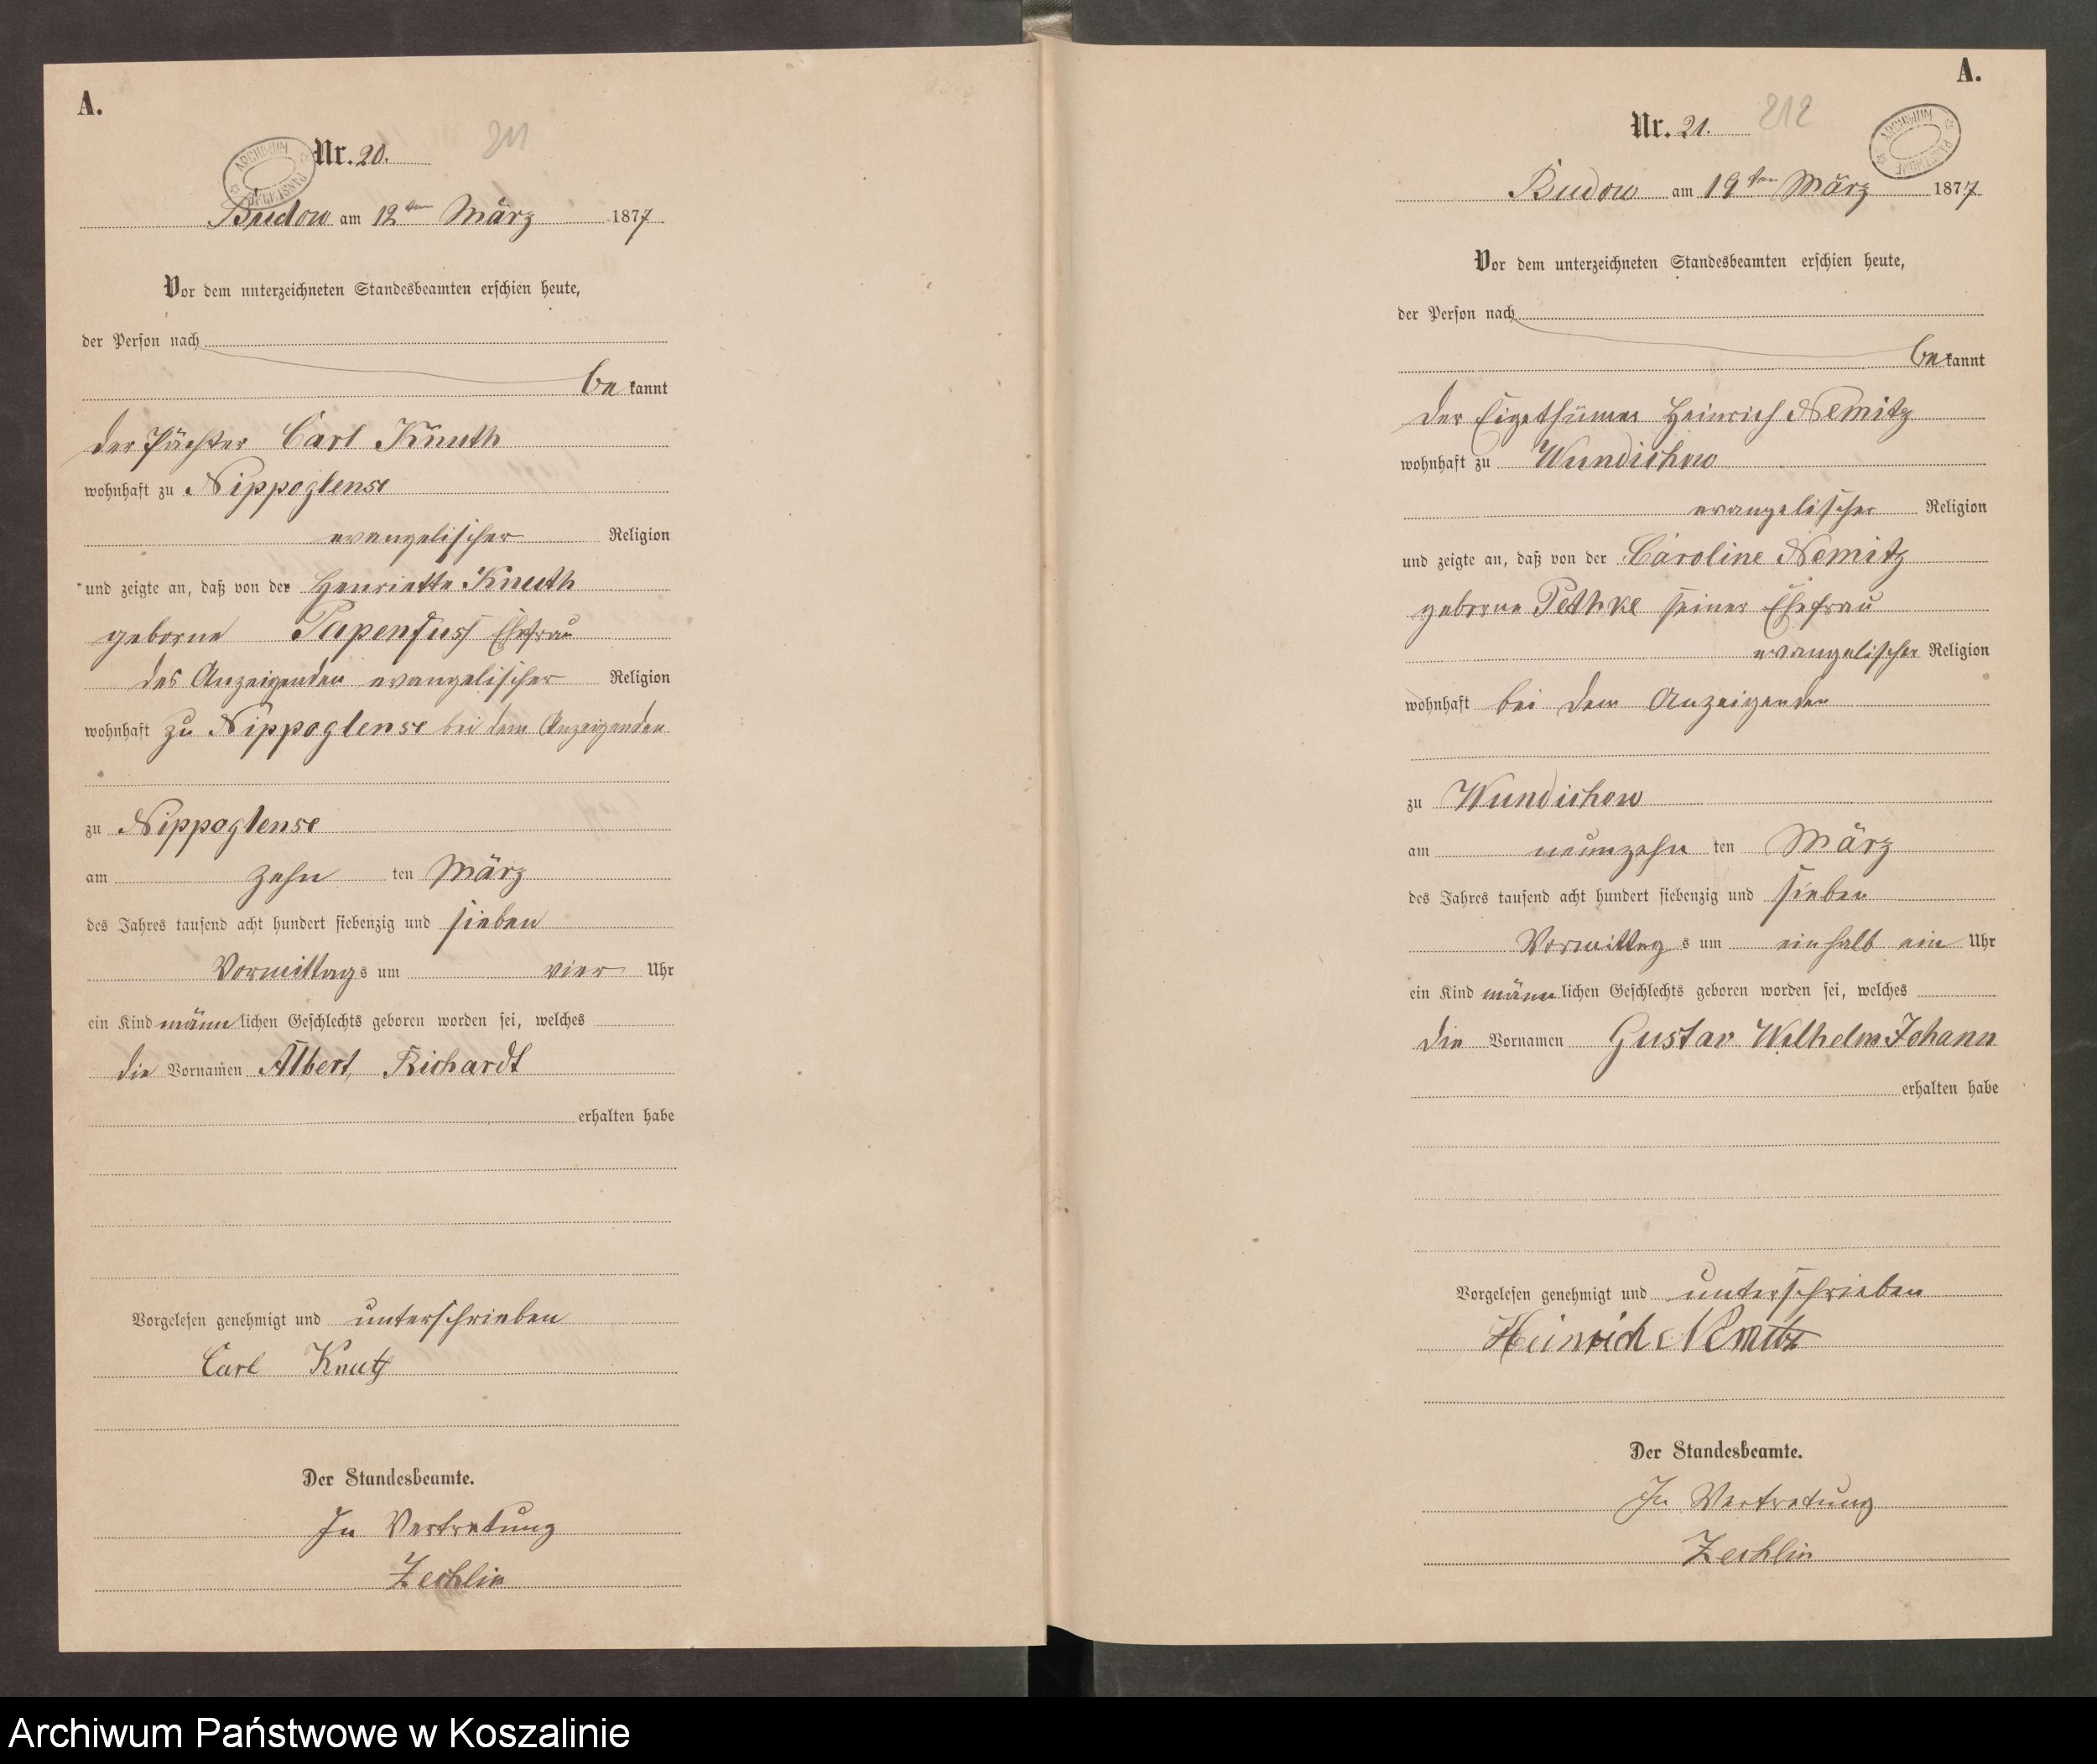 A.
Nr. 20.
211
ARCHIWUM PAŃSTWOWE
Budow am 12ten März 1877
Vor dem unterzeichneten Standesbeamten erschien heute,
der Person nach
bekannt
der Pächter Carl Knuth
wohnhaft zu Nippoglense
evangelischer Religion
und zeigte an, daß von der Henriette Knuth
geborne Papenfuss Ehefrau
des Anzeigenden evangelischer Religion
wohnhaft zu Nippoglense bei dem Anzeigenden
zu Nippoglense
am zehn ten März
des Jahres tausend acht hundert siebenzig und sieben
Vormittags um vier Uhr
ein Kind männlichen Geschlechts geboren worden sei, welches
die Vornamen Albert, Richardt
erhalten habe
Vorgelesen genehmigt und unterschrieben
Carl Knuth
Der Standesbeamte.
In Vertretung
Zechlin
A.
Nr. 21.
212
ARCHIWUM PAŃSTWOWE
Budow am 19ten März 1877
Vor dem unterzeichneten Standesbeamten erschien heute,
der Person nach
bekannt
der Eigethümer Heinrich Nemitz
wohnhaft zu Wundichow
evangelischer Religion
und zeigte an, daß von der Caroline Nemitz
geborne Pethke seiner Ehefrau
evangelischer Religion
wohnhaft bei dem Anzeigenden
zu Wundichow
am neunzehn ten März
des Jahres tausend acht hundert siebenzig und sieben
Vormittag s um ein halb ein Uhr
ein Kind männlichen Geschlechts geboren worden sei, welches
die Vornamen Gustav Wilhelm Johann
erhalten habe
Vorgelesen genehmigt und unterschrieben
Heinrich Nemitz
Der Standesbeamte.
In Vertretung
Zechlin
Archiwum Państwowe w Koszalinie